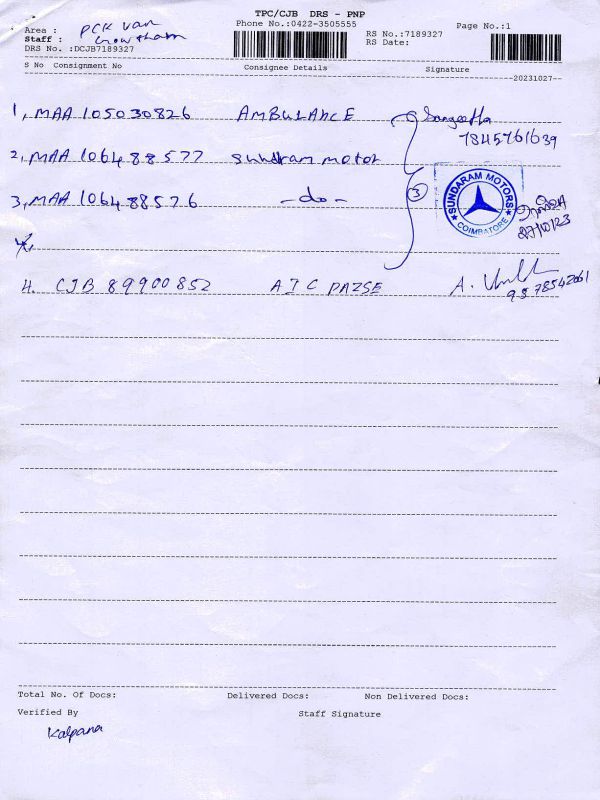 TPC/CJB DRS - PNP
Phone No.:0422-3505555
Page No.:1
Area : PCK Van
Staff : Gowtham
RS No.:7189327
DRS No. :DCJB7189327
RS Date:
S No Consignment No Consignee Details Signature
20231027
1, MAA 105030826 AMBULANCE Sangeetha
7845761639
2, MAA 106488577 Sundram motor
3, MAA 106488576 -do- 3
SUNDARAM MOTORS
COIMBATORE
27/10/23
4. CJB 89900852 A.
Total No. Of Docs: Delivered Docs: Non Delivered Docs:
Verified By Staff Signature
Kalpana